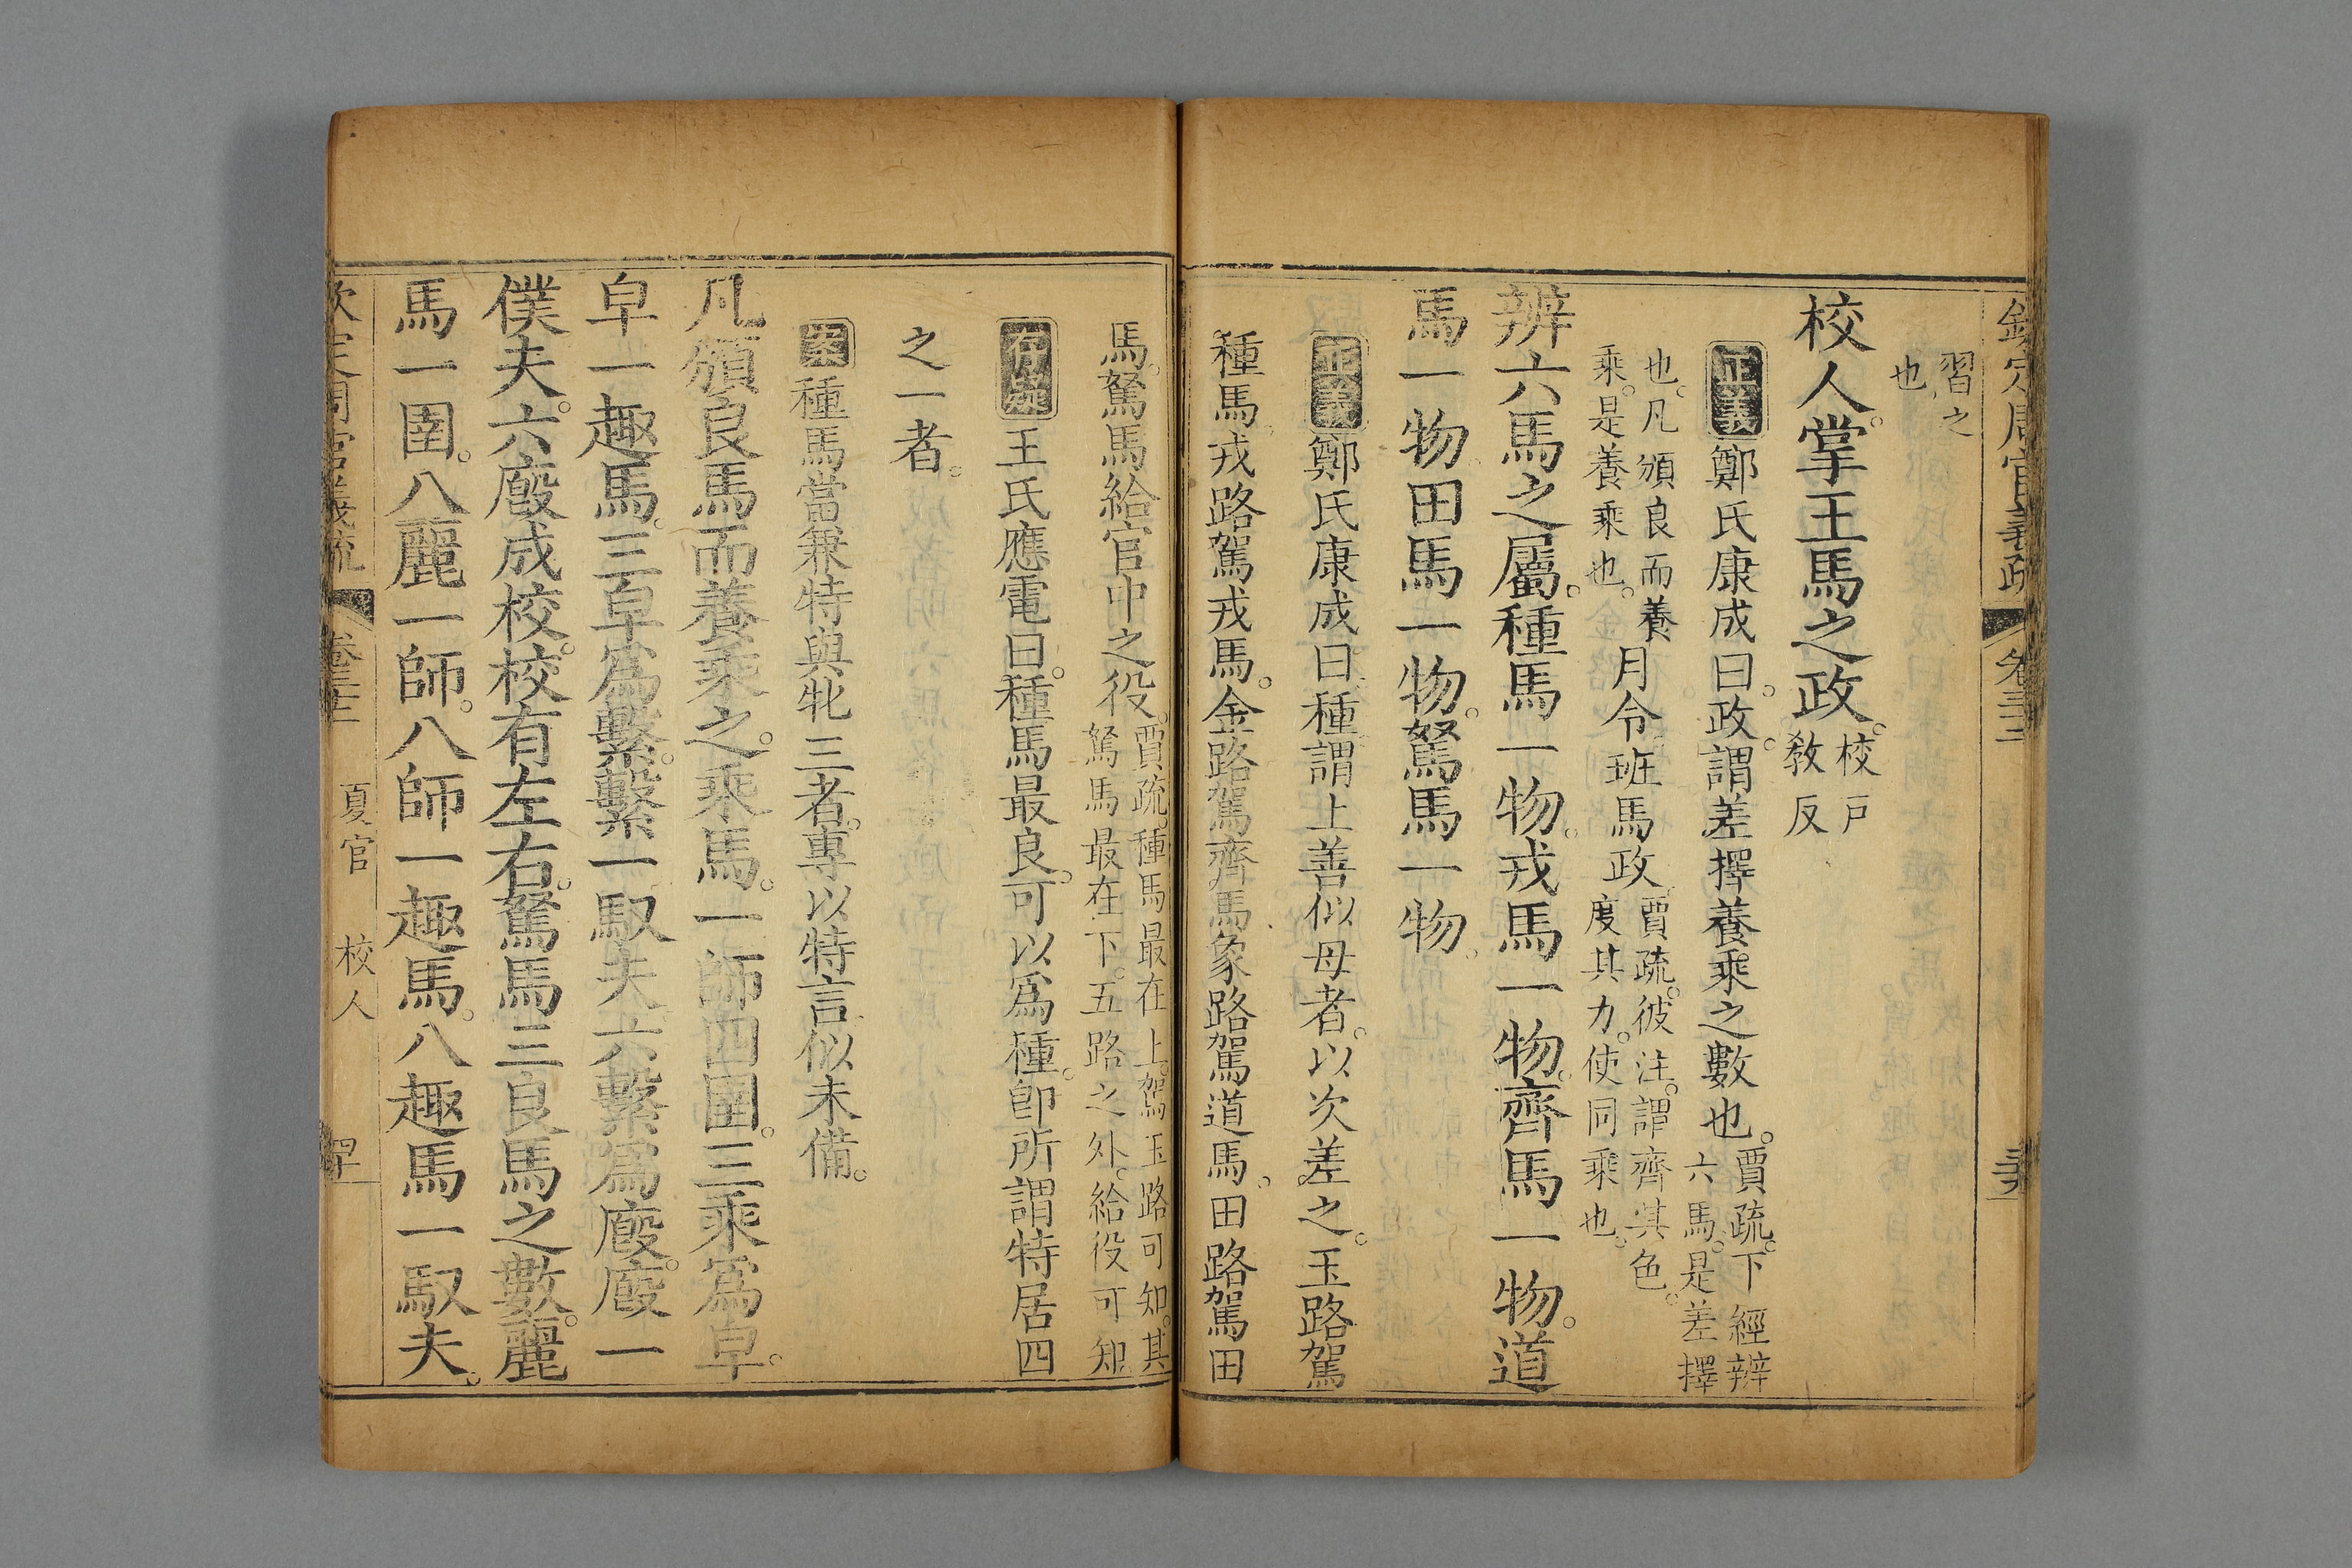 欽定周官義疏 卷三十二
習之
也
校人。掌王馬之政。校戶
教反
正義 鄭氏康成曰。政。謂差擇養乘之數也。賈疏。下經辨
六馬。是差擇
也。凡頒良而養
乘。是養乘也。
月令班馬政 賈疏。彼注。謂齊其色。
度其力。使同乘也。
辨六馬之屬。種馬一物。戎馬一物。齊馬一物。道
馬一物。田馬一物。駑馬一物。
正義 鄭氏康成曰。種。謂上善似母者。以次差之。玉路駕
種馬。戎路駕戎馬。金路駕齊馬。象路駕道馬。田路駕田
馬。駑馬給官中之役。賈疏。種馬最在上。駕玉路可知。其
駑馬最在下。五路之外。給役可知
存疑 王氏應電曰。種馬最良。可以爲種。卽所謂特居四
之一者。
案 種馬當兼特與牝三者。專以特言似未備。
凡頒良馬而養乘之。乘馬。一師四圉。三乘爲皁。
皁一趣馬。三皁爲繫。繫一馭夫。六繫爲廄。廄一
僕夫。六廄成校。校有左右。駑馬三良馬之數。麗
馬一圉。八麗一師。八師一趣馬。八趣馬一馭夫。
欽定周官義疏 卷三十二 夏官 校人